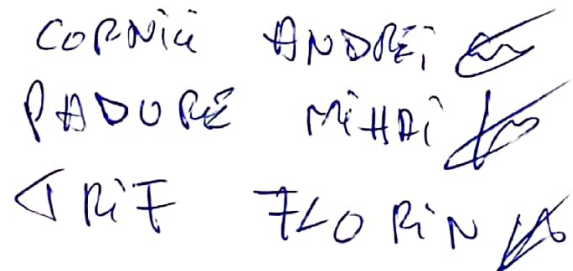 CORNII ANDREI
PADURE MIHAI
TRIF FLORIN